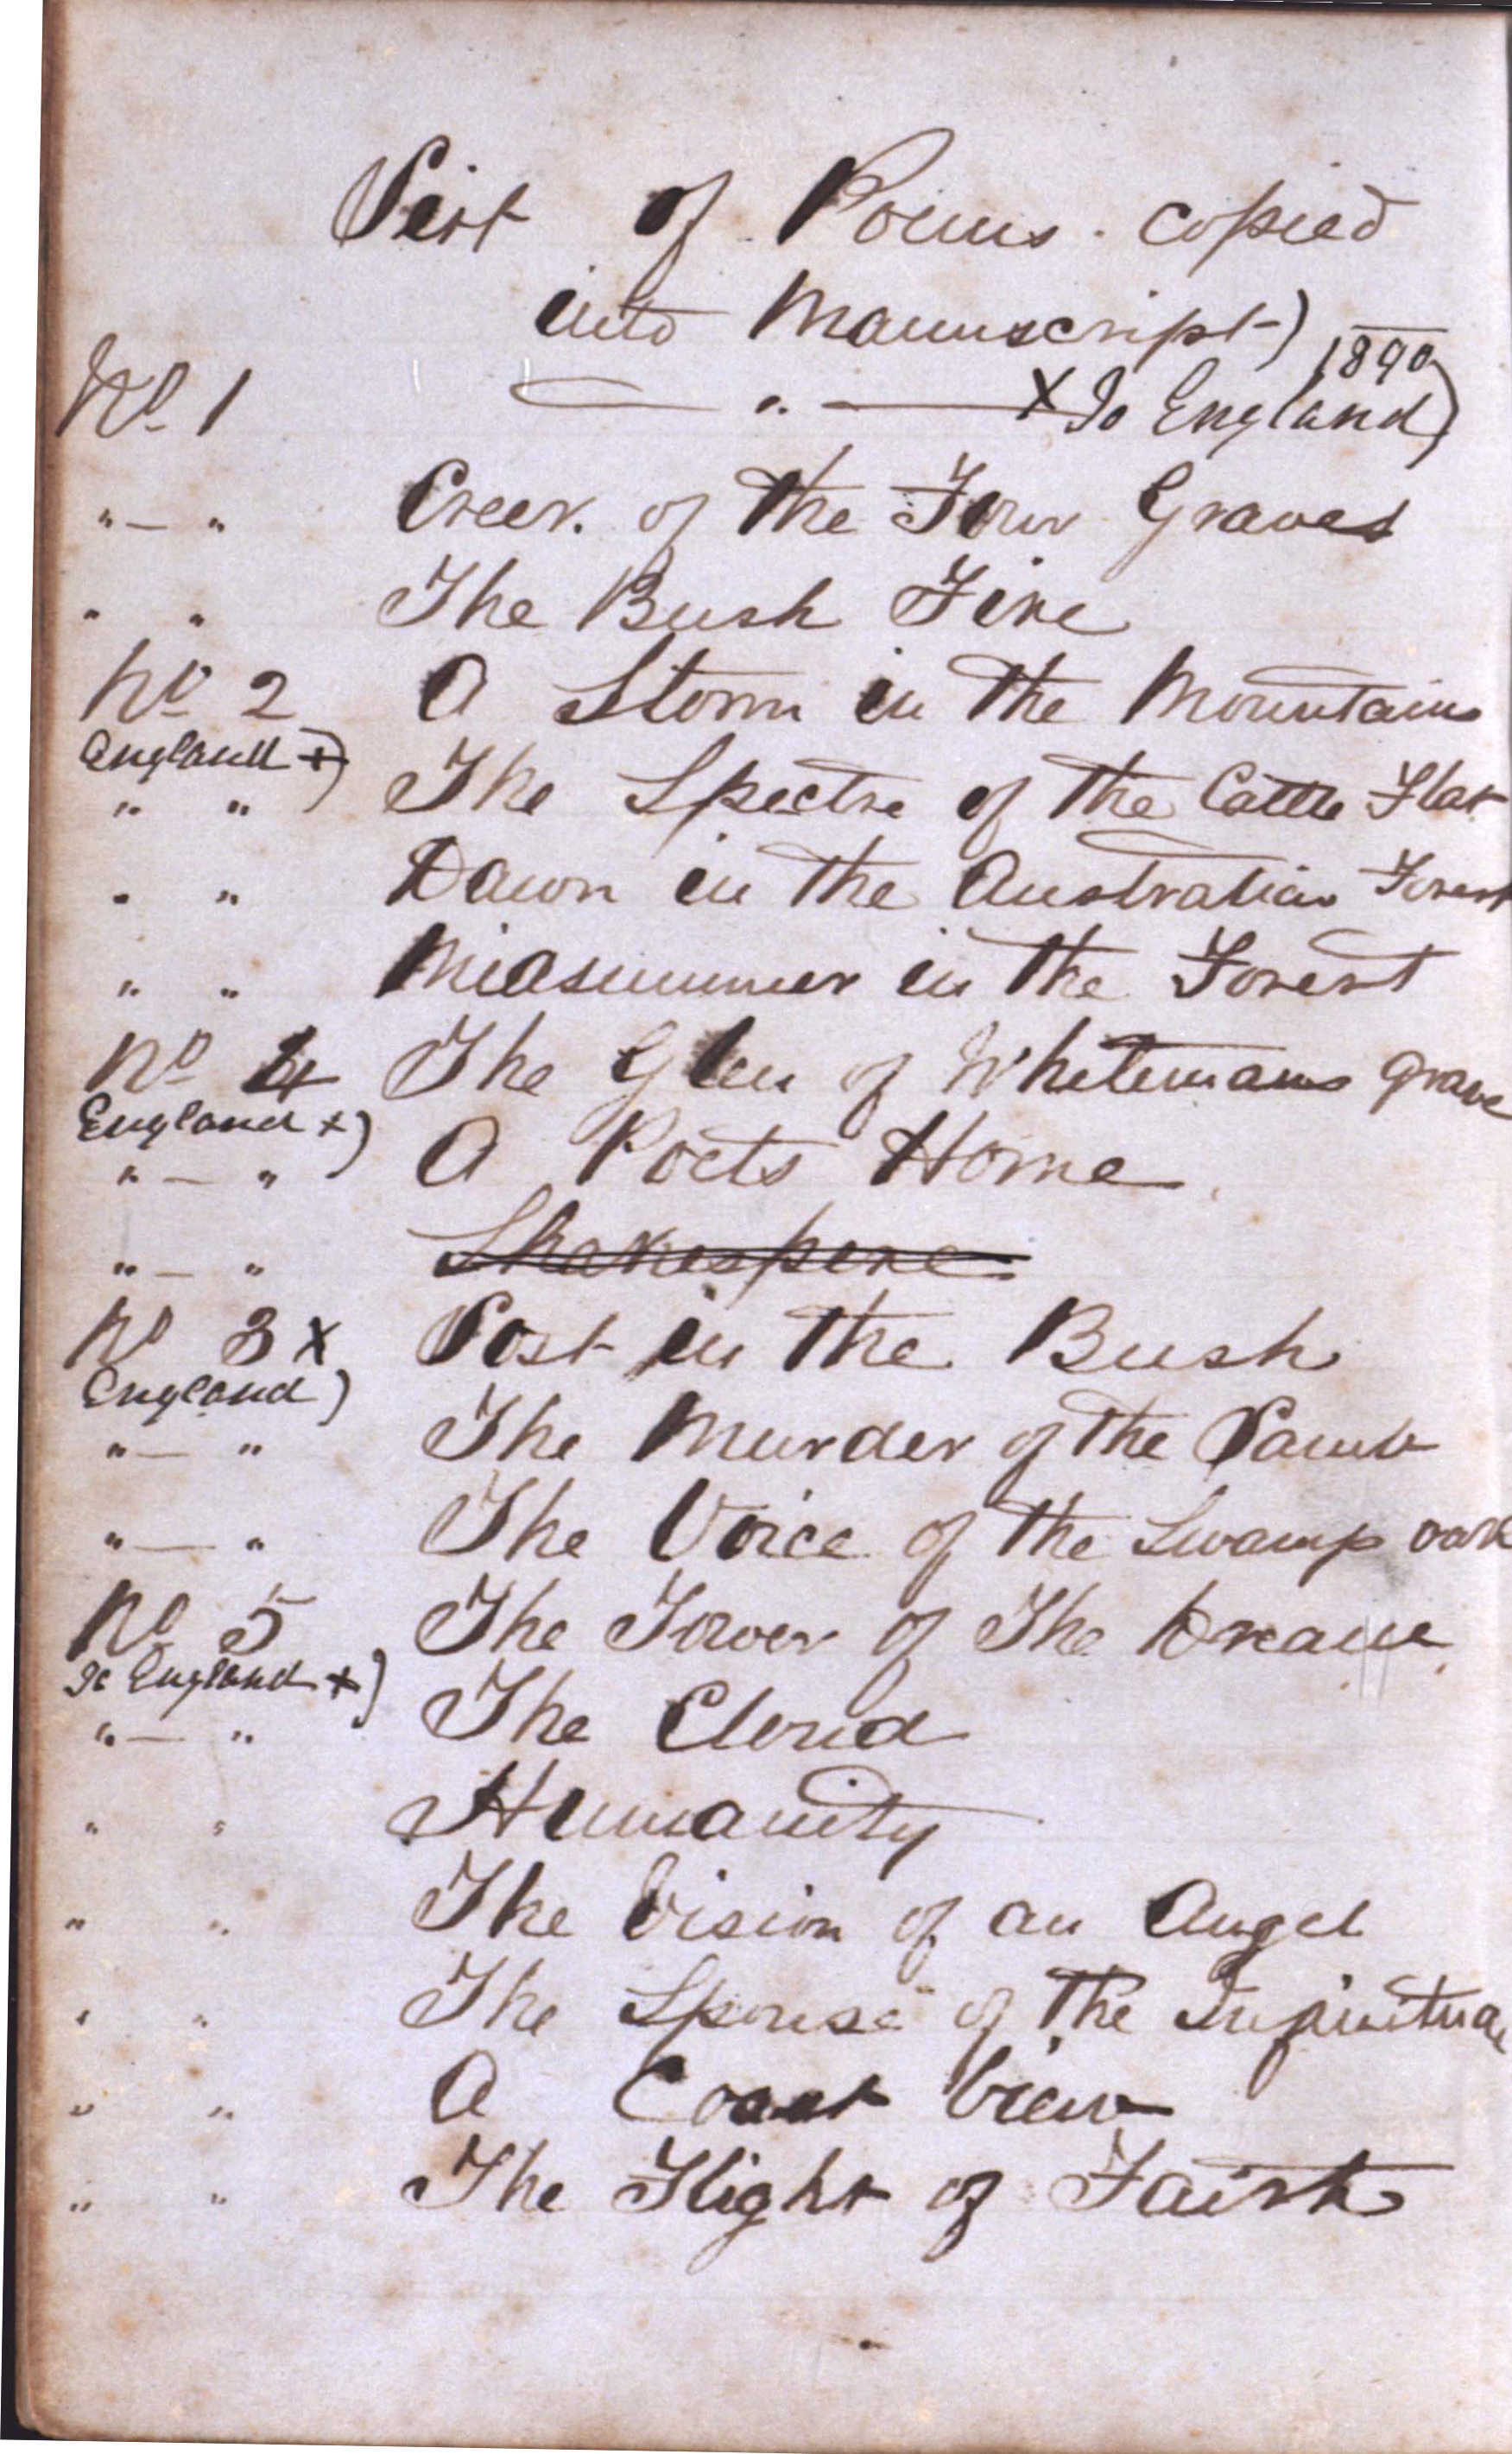 List of Poems. copied
into Manuscript) 1890
No 1 — " — X To England)
" — " Creek. of the Four Graves
" " The Bush Fire
No 2 A Storm in the Mountains
England +)
" " The Spectre of the Cattle Flat
" " Dawn in the Australian Forest
" " Midsummer in the Forest
No 4 The Glen of Whitemans Grave
England +)
" — " A Poets Home
" — " Shakespere
No 3 X Lost in the Bush
England)
" — " The Murder of the Lamb
" — " The Voice of the Swamp oak
No 5 The Tower of The Dream
To England +)
" — " The Cloud
" " Humanity
" " The Vision of an Angel
" " The Spouse of the
" " A Coast View
" " The Flight of Faith